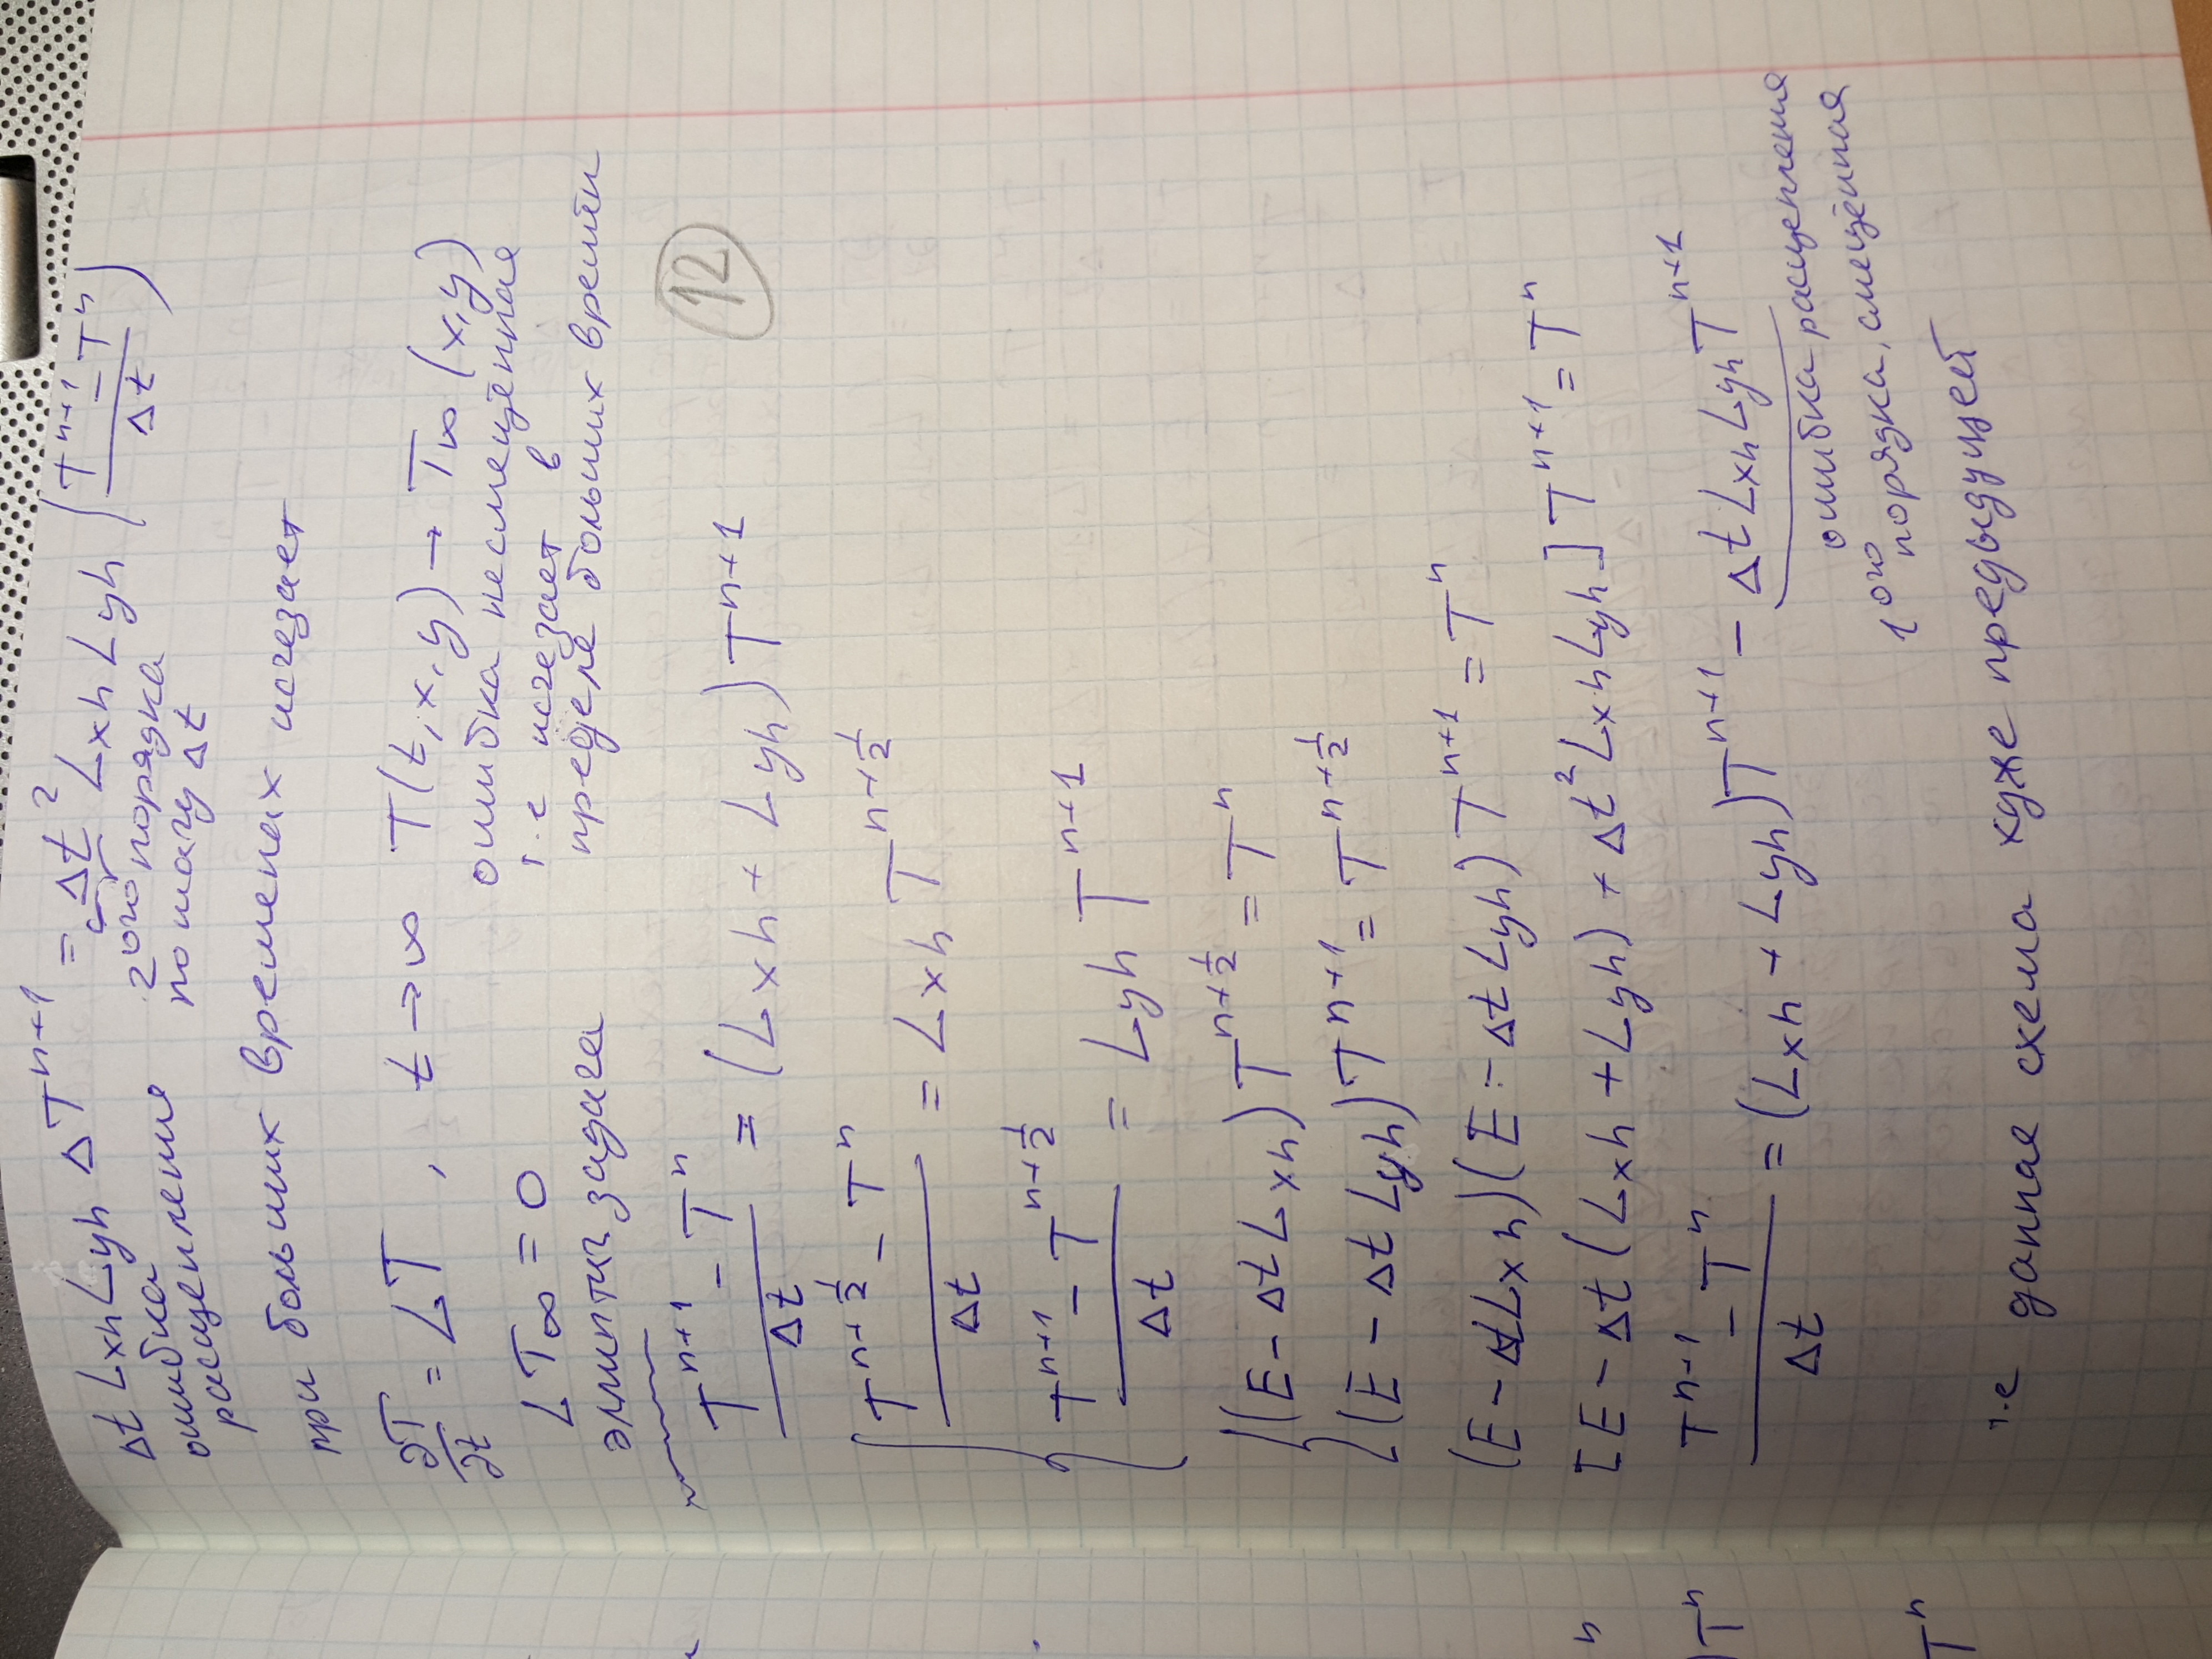 Δt Lxh Lyh ΔT^{n+1} = Δt² Lxh Lyh ( (T^{n+1} - T^n) / Δt )
ошибка расщепления
2^{ого} порядка
по шагу Δt
при больших временах исчезает
∂T/∂t = LT , t → ∞ T(t,x,y) → T∞ (x,y)
ошибка несмещённая
LT∞ = 0
т.е исчезает в
эллиптич задача
пределе больших времён
(T^{n+1} - T^n) / Δt = (Lxh + Lyh) T^{n+1}
12
(T^{n+1/2} - T^n) / Δt = Lxh T^{n+1/2}
(T^{n+1} - T^{n+1/2}) / Δt = Lyh T^{n+1}
(E - Δt Lxh) T^{n+1/2} = T^n
(E - Δt Lyh) T^{n+1} = T^{n+1/2}
(E - Δt Lxh)(E - Δt Lyh) T^{n+1} = T^n
[E - Δt (Lxh + Lyh) + Δt² Lxh Lyh] T^{n+1} = T^n
(T^{n+1} - T^n) / Δt = (Lxh + Lyh) T^{n+1} - Δt Lxh Lyh T^{n+1}
ошибка расщепления
1^{ого} порядка, смещённая
т.е данная схема хуже предыдущей
n
)T^n
T^n